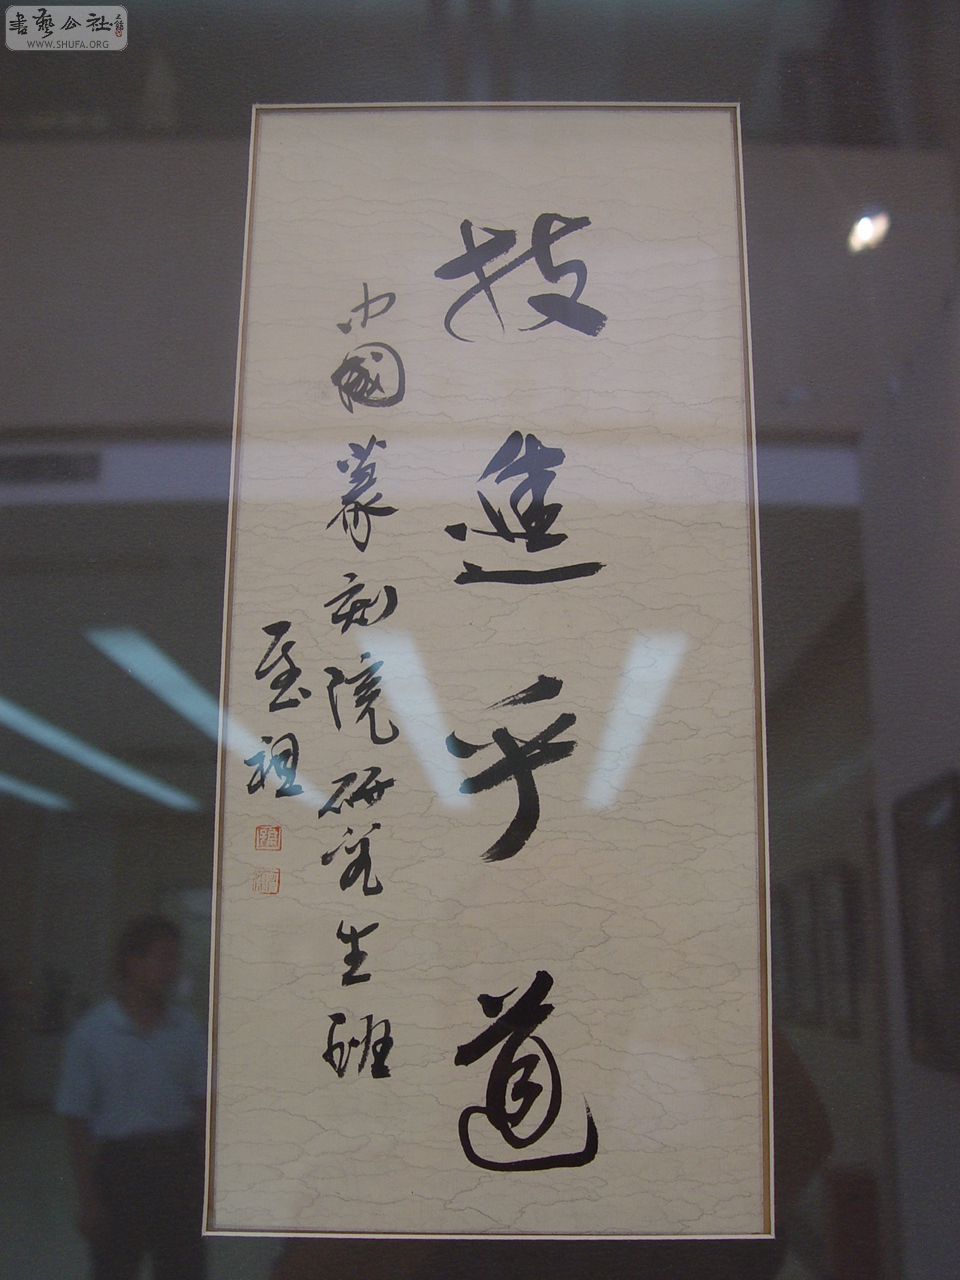 技進乎道
中國篆刻院研究生班
至祖
書藝公社
WWW.SHUFA.ORG